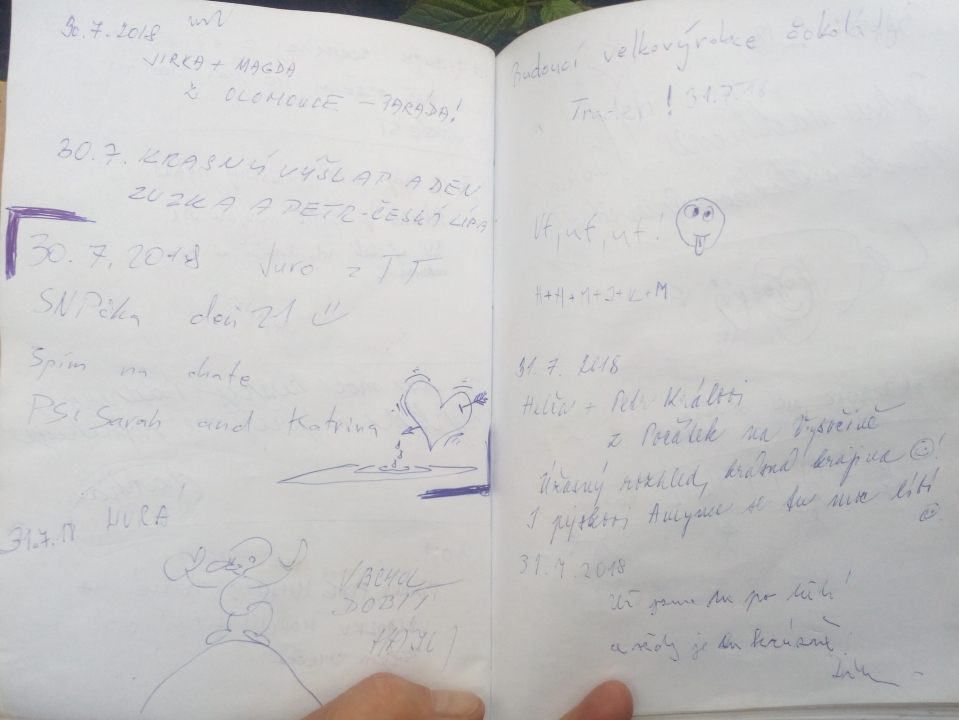 30.7.2018
JIRKA + MAGDA
Z OLOMOUCE - PARÁDA!
30.7. KRASNÝ VÝŠLAP A DEN
ZUZKA A PETR - ČESKÁ LÍPA
30.7.2018 Juro z TT
SNPčka deň 21
Spím na chate
PS: Sarah and Katrina
31.7.18 HURÁ
DOBÍT
Budoucí velkovýrobce čokolády
! 31.7.18
Uf, uf, uf!
H+H+M+J+K+M
31.7. 2018
+ Petr Královi
z Počátek na Vysočině
Úžasný rozhled, krásná krajina!
I pejskovi se tu moc líbí
31.7.2018
Už jsme tu po
a vždy je tu krásně.